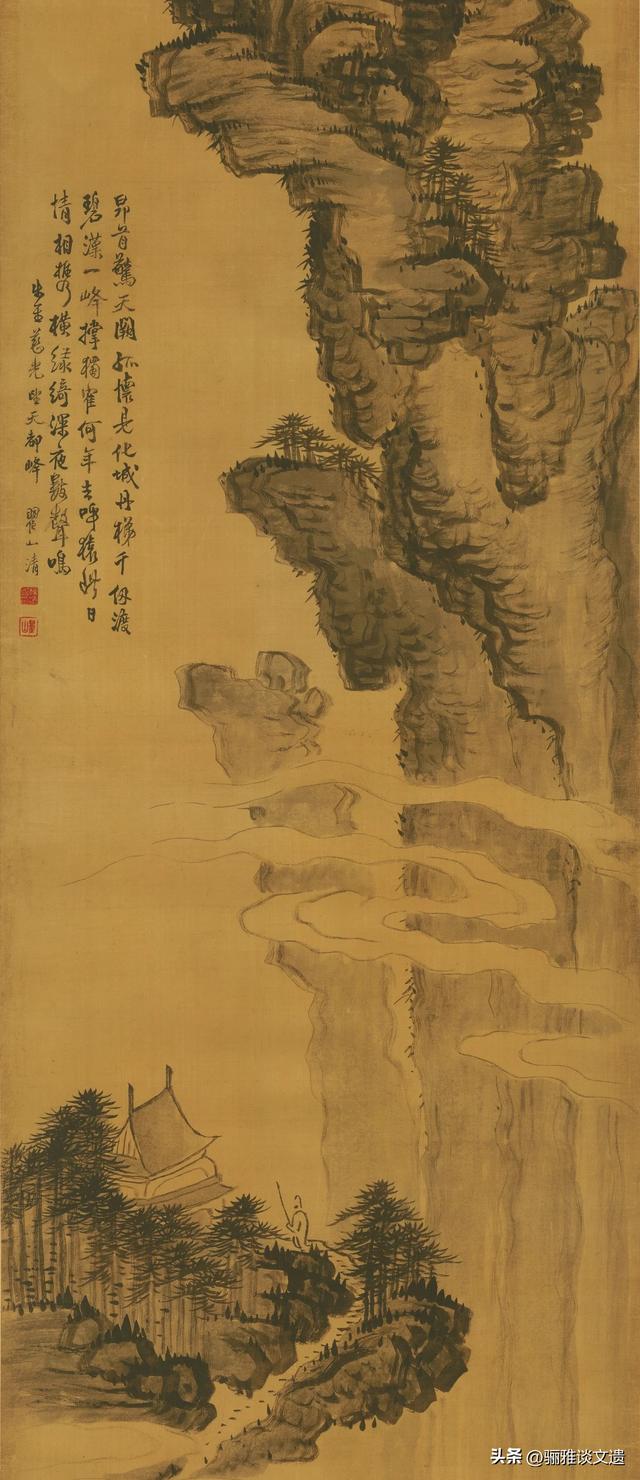 昂首驚天闕孤懷是化城丹梯千仞渡
碧漢一峰撐獨寉何年去呼猿此日
情相携橫綠綺深夜皷聲鳴
未至慈光望天都峰 瞿山清
头条 @骊雅谈文遗